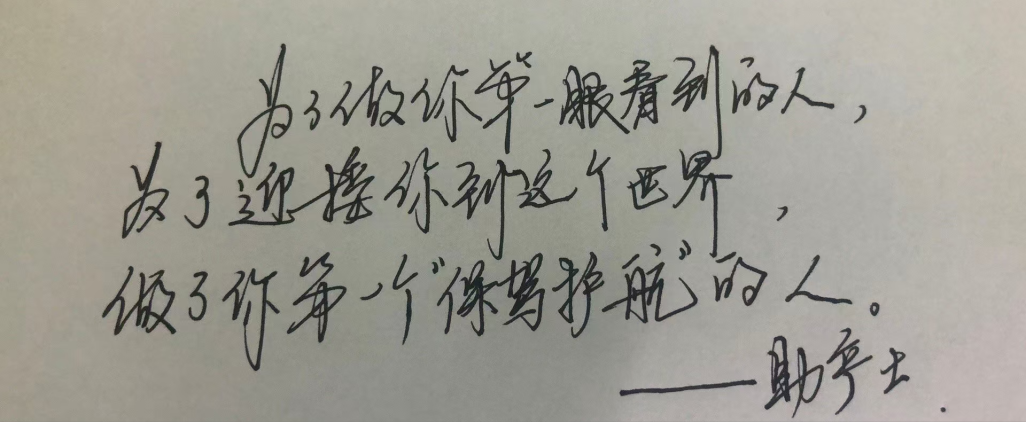 为了做你第一眼看到的人，
为了迎接你到这个世界，
做了你第一个“保驾护航”的人。
——助产士.